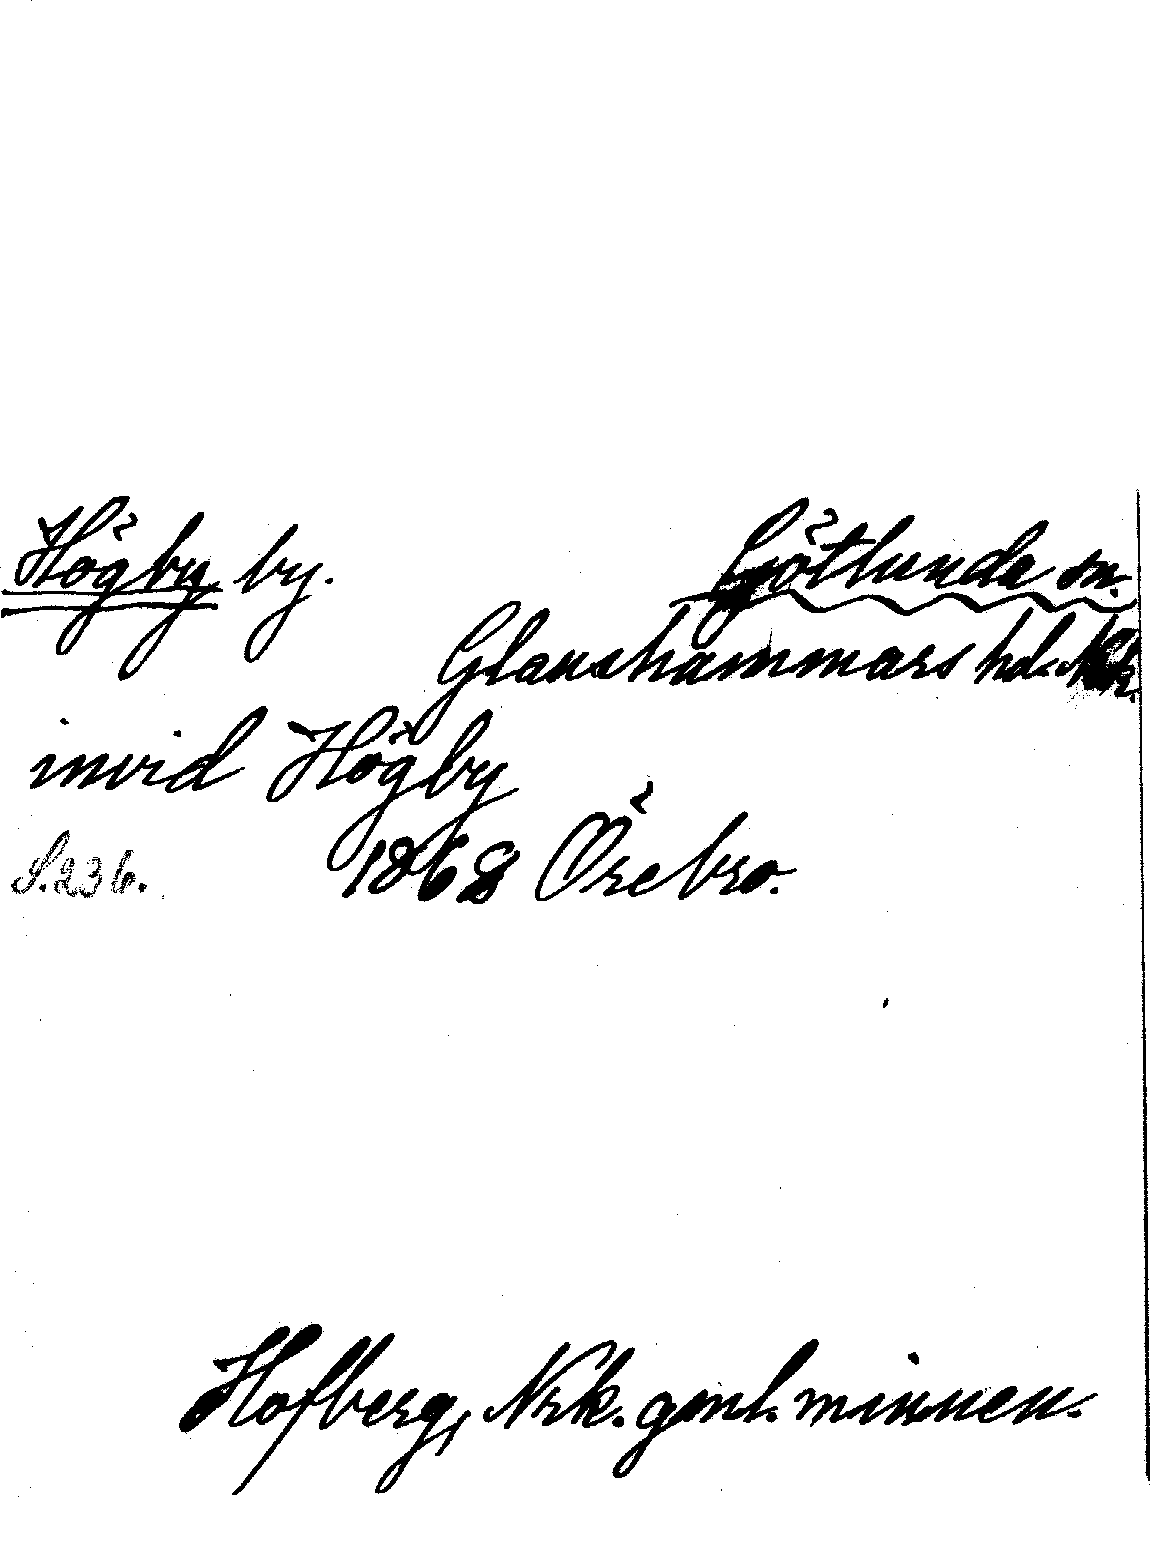 Högby by. Götlunda sn.
Glanshammars hd. Nrk.
invid Högby
S. 236. 1868 Örebro.
Hofberg, Nrk. gml. minnen.